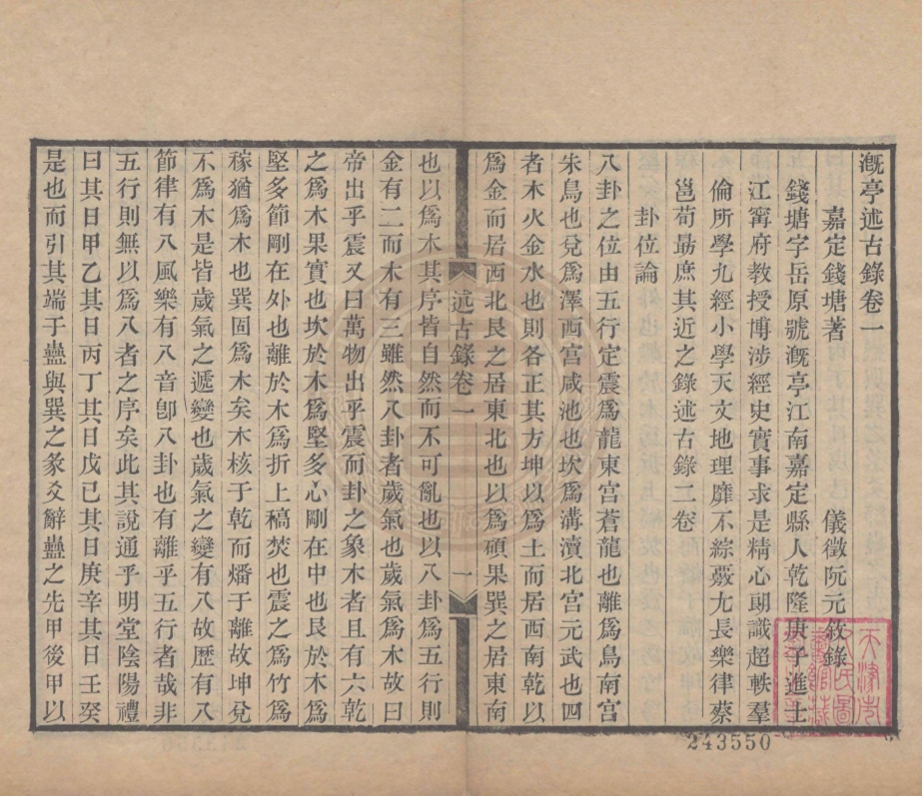 溉亭述古錄卷一
嘉定錢塘著　儀徵阮元敘錄
錢塘字岳原號溉亭江南嘉定縣人乾隆庚子進士
江寧府教授博涉經史實事求是精心朗識超軼羣
倫所學九經小學天文地理靡不綜覈尢長樂律蔡
邕荀勗庶其近之錄述古錄二卷
卦位論
八卦之位由五行定震爲龍東宮蒼龍也離爲鳥南宮
朱鳥也兌爲澤西宮咸池也坎爲溝瀆北宮元武也四
者木火金水也則各正其方坤以爲土而居西南乾以
爲金而居西北艮之居東北也以爲碩果巽之居東南
述古錄卷一　一
也以爲木其序皆自然而不可亂也以八卦爲五行則
金有二而木有三雖然八卦者歲氣也歲氣爲木故曰
帝出乎震又曰萬物出乎震而卦之象木者且有六乾
之爲木果實也坎於木爲堅多心剛在中也艮於木爲
堅多節剛在外也離於木爲折上稿焚也震之爲竹爲
稼猶爲木也巽固爲木矣木核于乾而燔于離故坤兌
不爲木是皆歲氣之遞變也歲氣之變有八故歷有八
節律有八風樂有八音卽八卦也有離乎五行者哉非
五行則無以爲八者之序矣此其說通乎明堂陰陽禮
曰其日甲乙其日丙丁其日戊己其日庚辛其日壬癸
是也而引其端于蠱與巽之彖爻辭蠱之先甲後甲以
243550